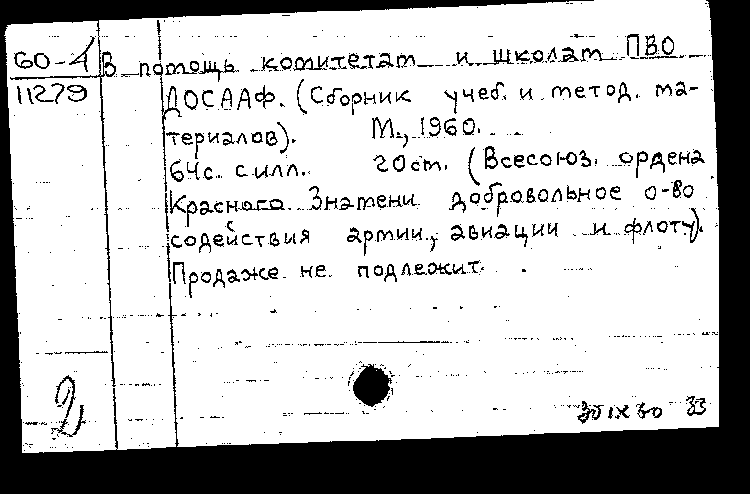 60-4 В помощь комитетам и школам ПВО
11279 ДОСААФ. (Сборник учеб. и метод. ма-
териалов). М., 1960.
64с. с илл. 20см. (Всесоюз. ордена
Красного Знамени добровольное о-во
содействия армии, авиации и флоту).
Продаже не подлежит.
2
30 IX 60 33